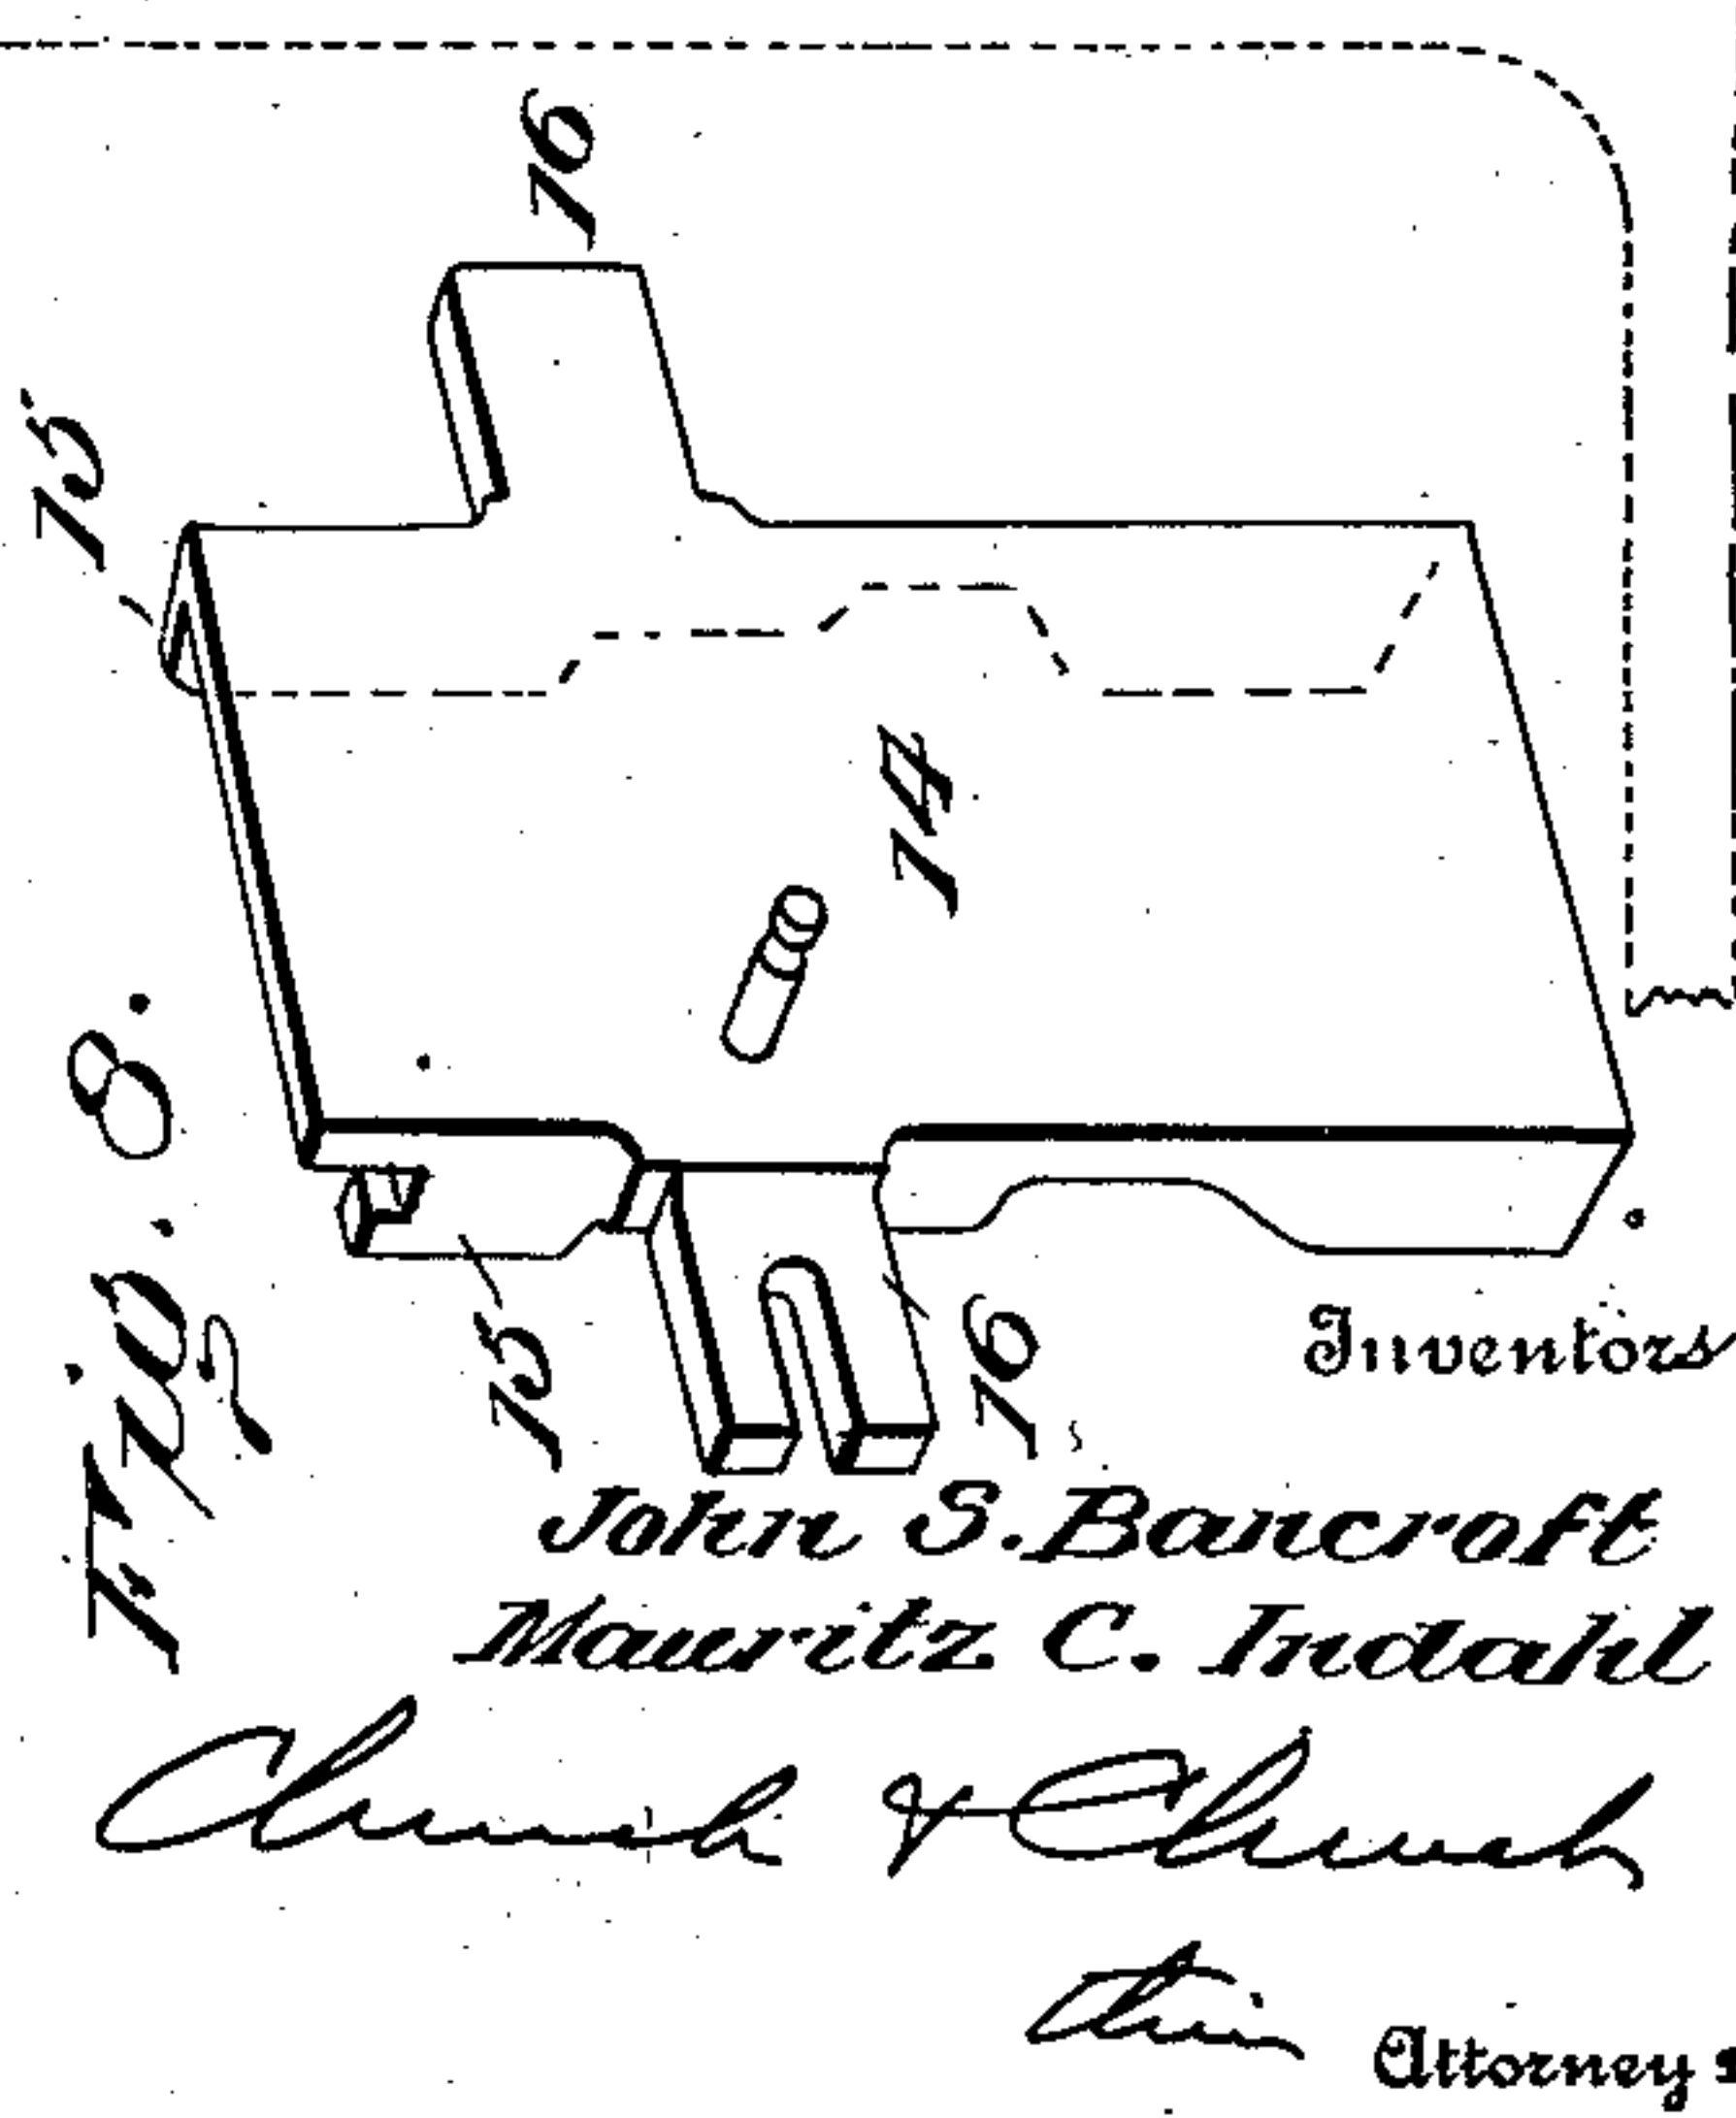 16
15
14
Fig. 8.
15
16
Inventors
John S. Bancroft
Mauritz C. Indahl
Church & Church
their
Attorneys